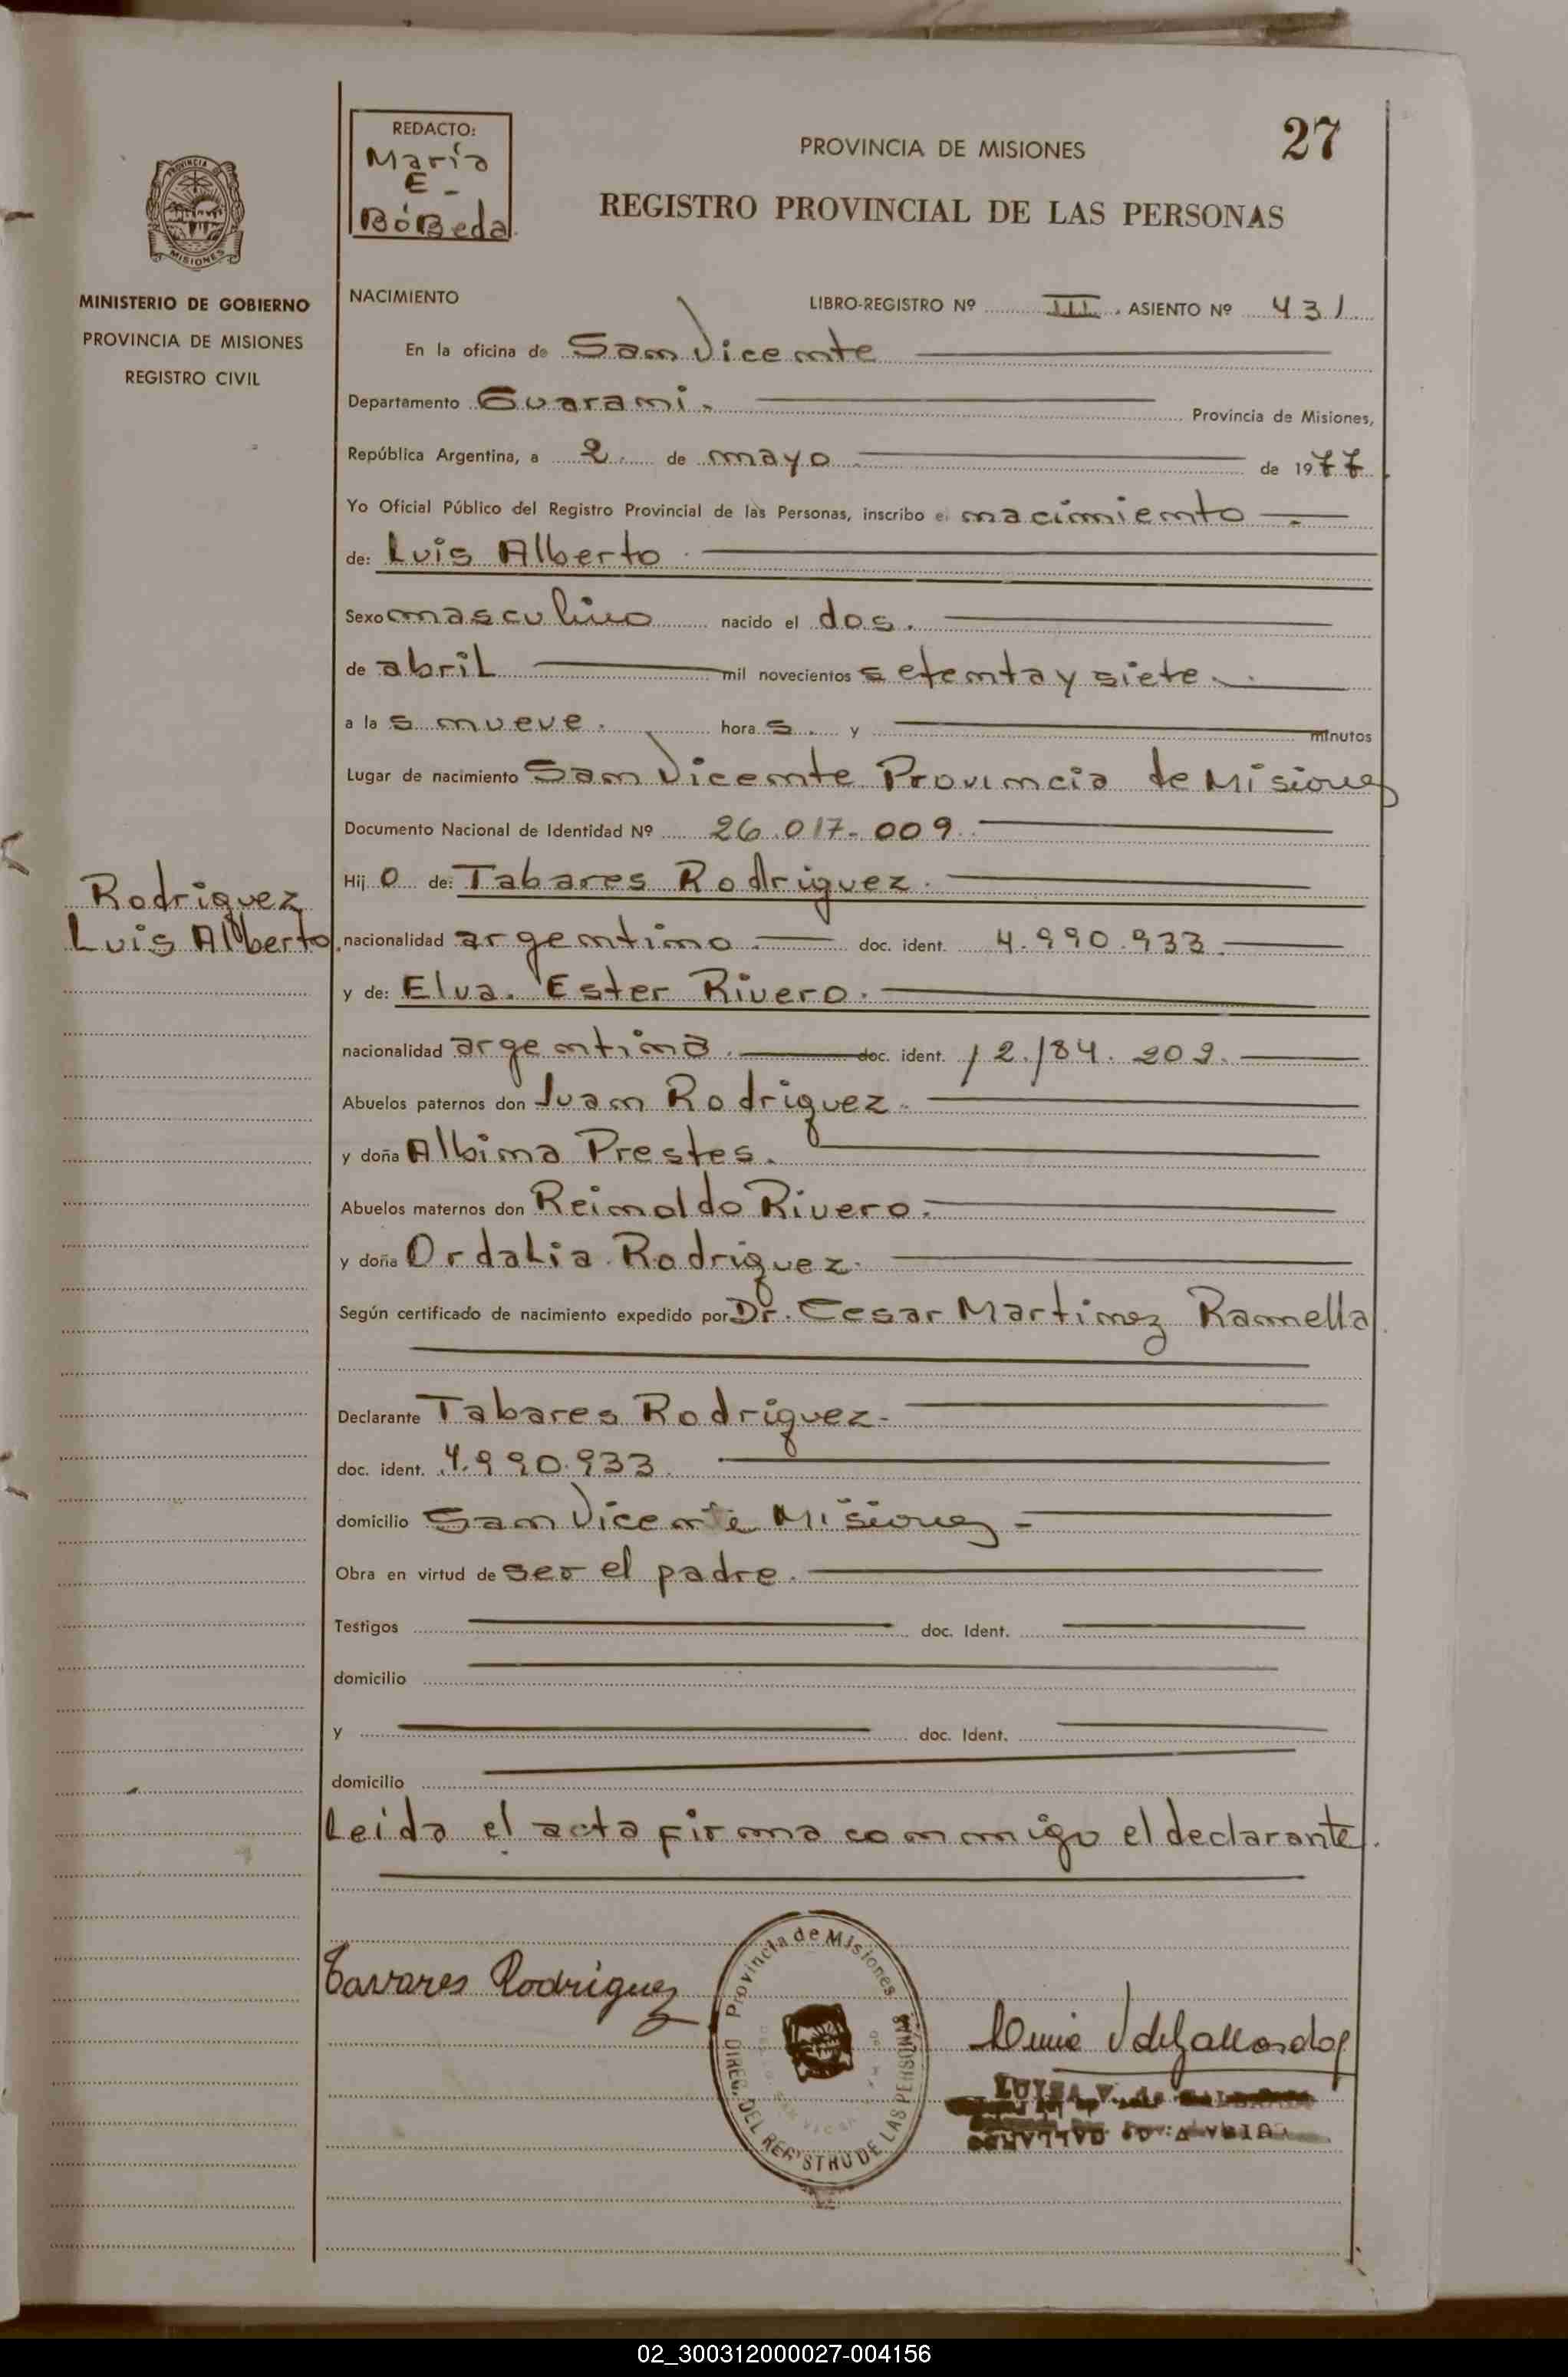 27
REDACTO:
María
E -
BóBeda
PROVINCIA DE MISIONES
REGISTRO PROVINCIAL DE LAS PERSONAS
PROVINCIA
MISIONES
MINISTERIO DE GOBIERNO
PROVINCIA DE MISIONES
REGISTRO CIVIL
NACIMIENTO LIBRO-REGISTRO Nº III. ASIENTO Nº 431
En la oficina de San Vicente
Departamento Guarani. Provincia de Misiones,
República Argentina, a 2 de mayo de 1977
Yo Oficial Público del Registro Provincial de las Personas, inscribo el nacimiento
de: Luis Alberto
Sexo masculino nacido el dos.
de abril mil novecientos setenta y siete
a las nueve. horas. y minutos
Lugar de nacimiento San Vicente Provincia de Misiones
Documento Nacional de Identidad Nº 26.017-009
Hijo de: Tabares Rodriguez.
Rodriguez
Luis Alberto
nacionalidad argentino doc. ident. 4.990.933
y de: Elva. Ester Rivero.
nacionalidad argentina doc. ident. 12.184.209.
Abuelos paternos don Juan Rodriguez
y doña Albina Prestes.
Abuelos maternos don Reinaldo Rivero.
y doña Ordalia Rodriguez.
Según certificado de nacimiento expedido por Dr. Cesar Martinez Ramella
Declarante Tabares Rodriguez-
doc. ident. 4.990.933
domicilio San Vicente Misiones -
Obra en virtud de ser el padre.
Testigos doc. Ident.
domicilio
y doc. Ident.
domicilio
Leida el acta firma conmigo el declarante.
Tavares Rodriguez
Provincia de Misiones
DIREC. DEL REGISTRO DE LAS PERSONAS
LUISA V. de
02_300312000027-004156